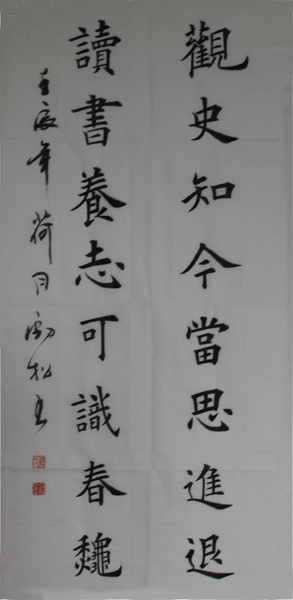 觀史知今當思進退
讀書養志可識春龝
壬辰年荷月